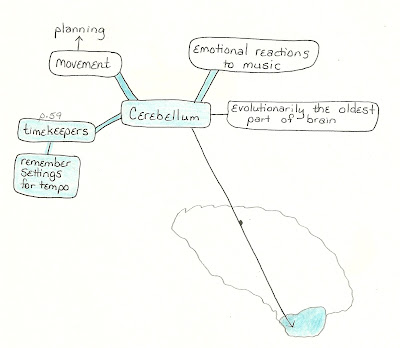 planning
movement
Emotional reactions
to music
Cerebellum
Evolutionarily the oldest
part of brain
p.59
timekeepers
remember
settings
for tempo